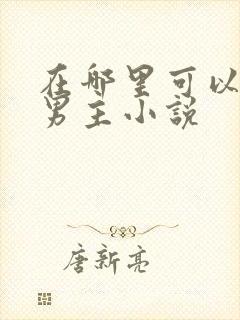 在哪里可以
男主小说
唐新亮